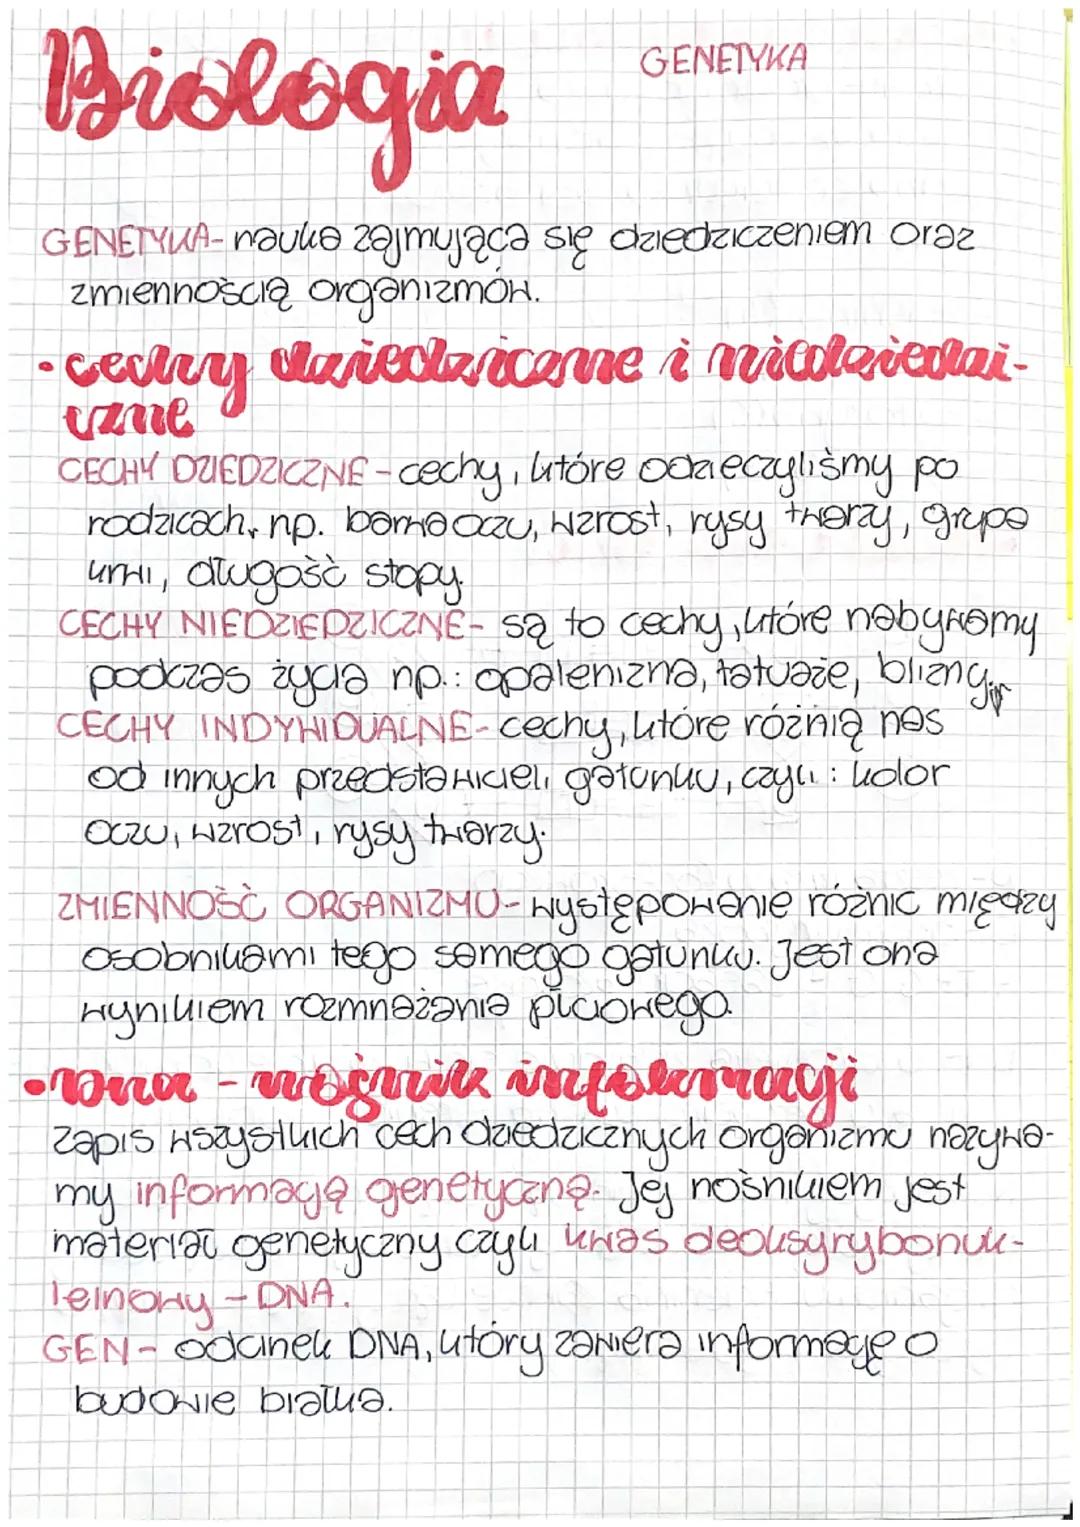 Biologia
GENETYKA
GENETYKA- nauka zajmująca się dziedziczeniem oraz
zmiennością organizmów.
• cechy dziedziczne i niedziedzi-
czne
CECHY DZIEDZICZNE - cechy, które odzieczyliśmy po
rodzicach, np. barwa oczu, wzrost, rysy twarzy, grupa
krwi, długość stopy.
CECHY NIEDZIEDZICZNE- są to cechy, które nabywamy
podczas życia np.: opalenizna, tatuaże, blizny,
CECHY INDYWIDUALNE- cechy, które różnią nas
od innych przedstawicieli gatunku, czyli : kolor
oczu, wzrost, rysy twarzy.
ZMIENNOŚĆ ORGANIZMU- występowanie różnic między
osobnikami tego samego gatunku. Jest ona
wynikiem rozmnażania płciowego.
• Dna - nośnik informacji
Zapis wszystkich cech dziedzicznych organizmu nazywa-
my informację genetyczną. Jej nośnikiem jest
materiał genetyczny czyli kwas deoksyrybonuk-
leinowy - DNA.
GEN- odcinek DNA, który zawiera informację o
budowie białka.